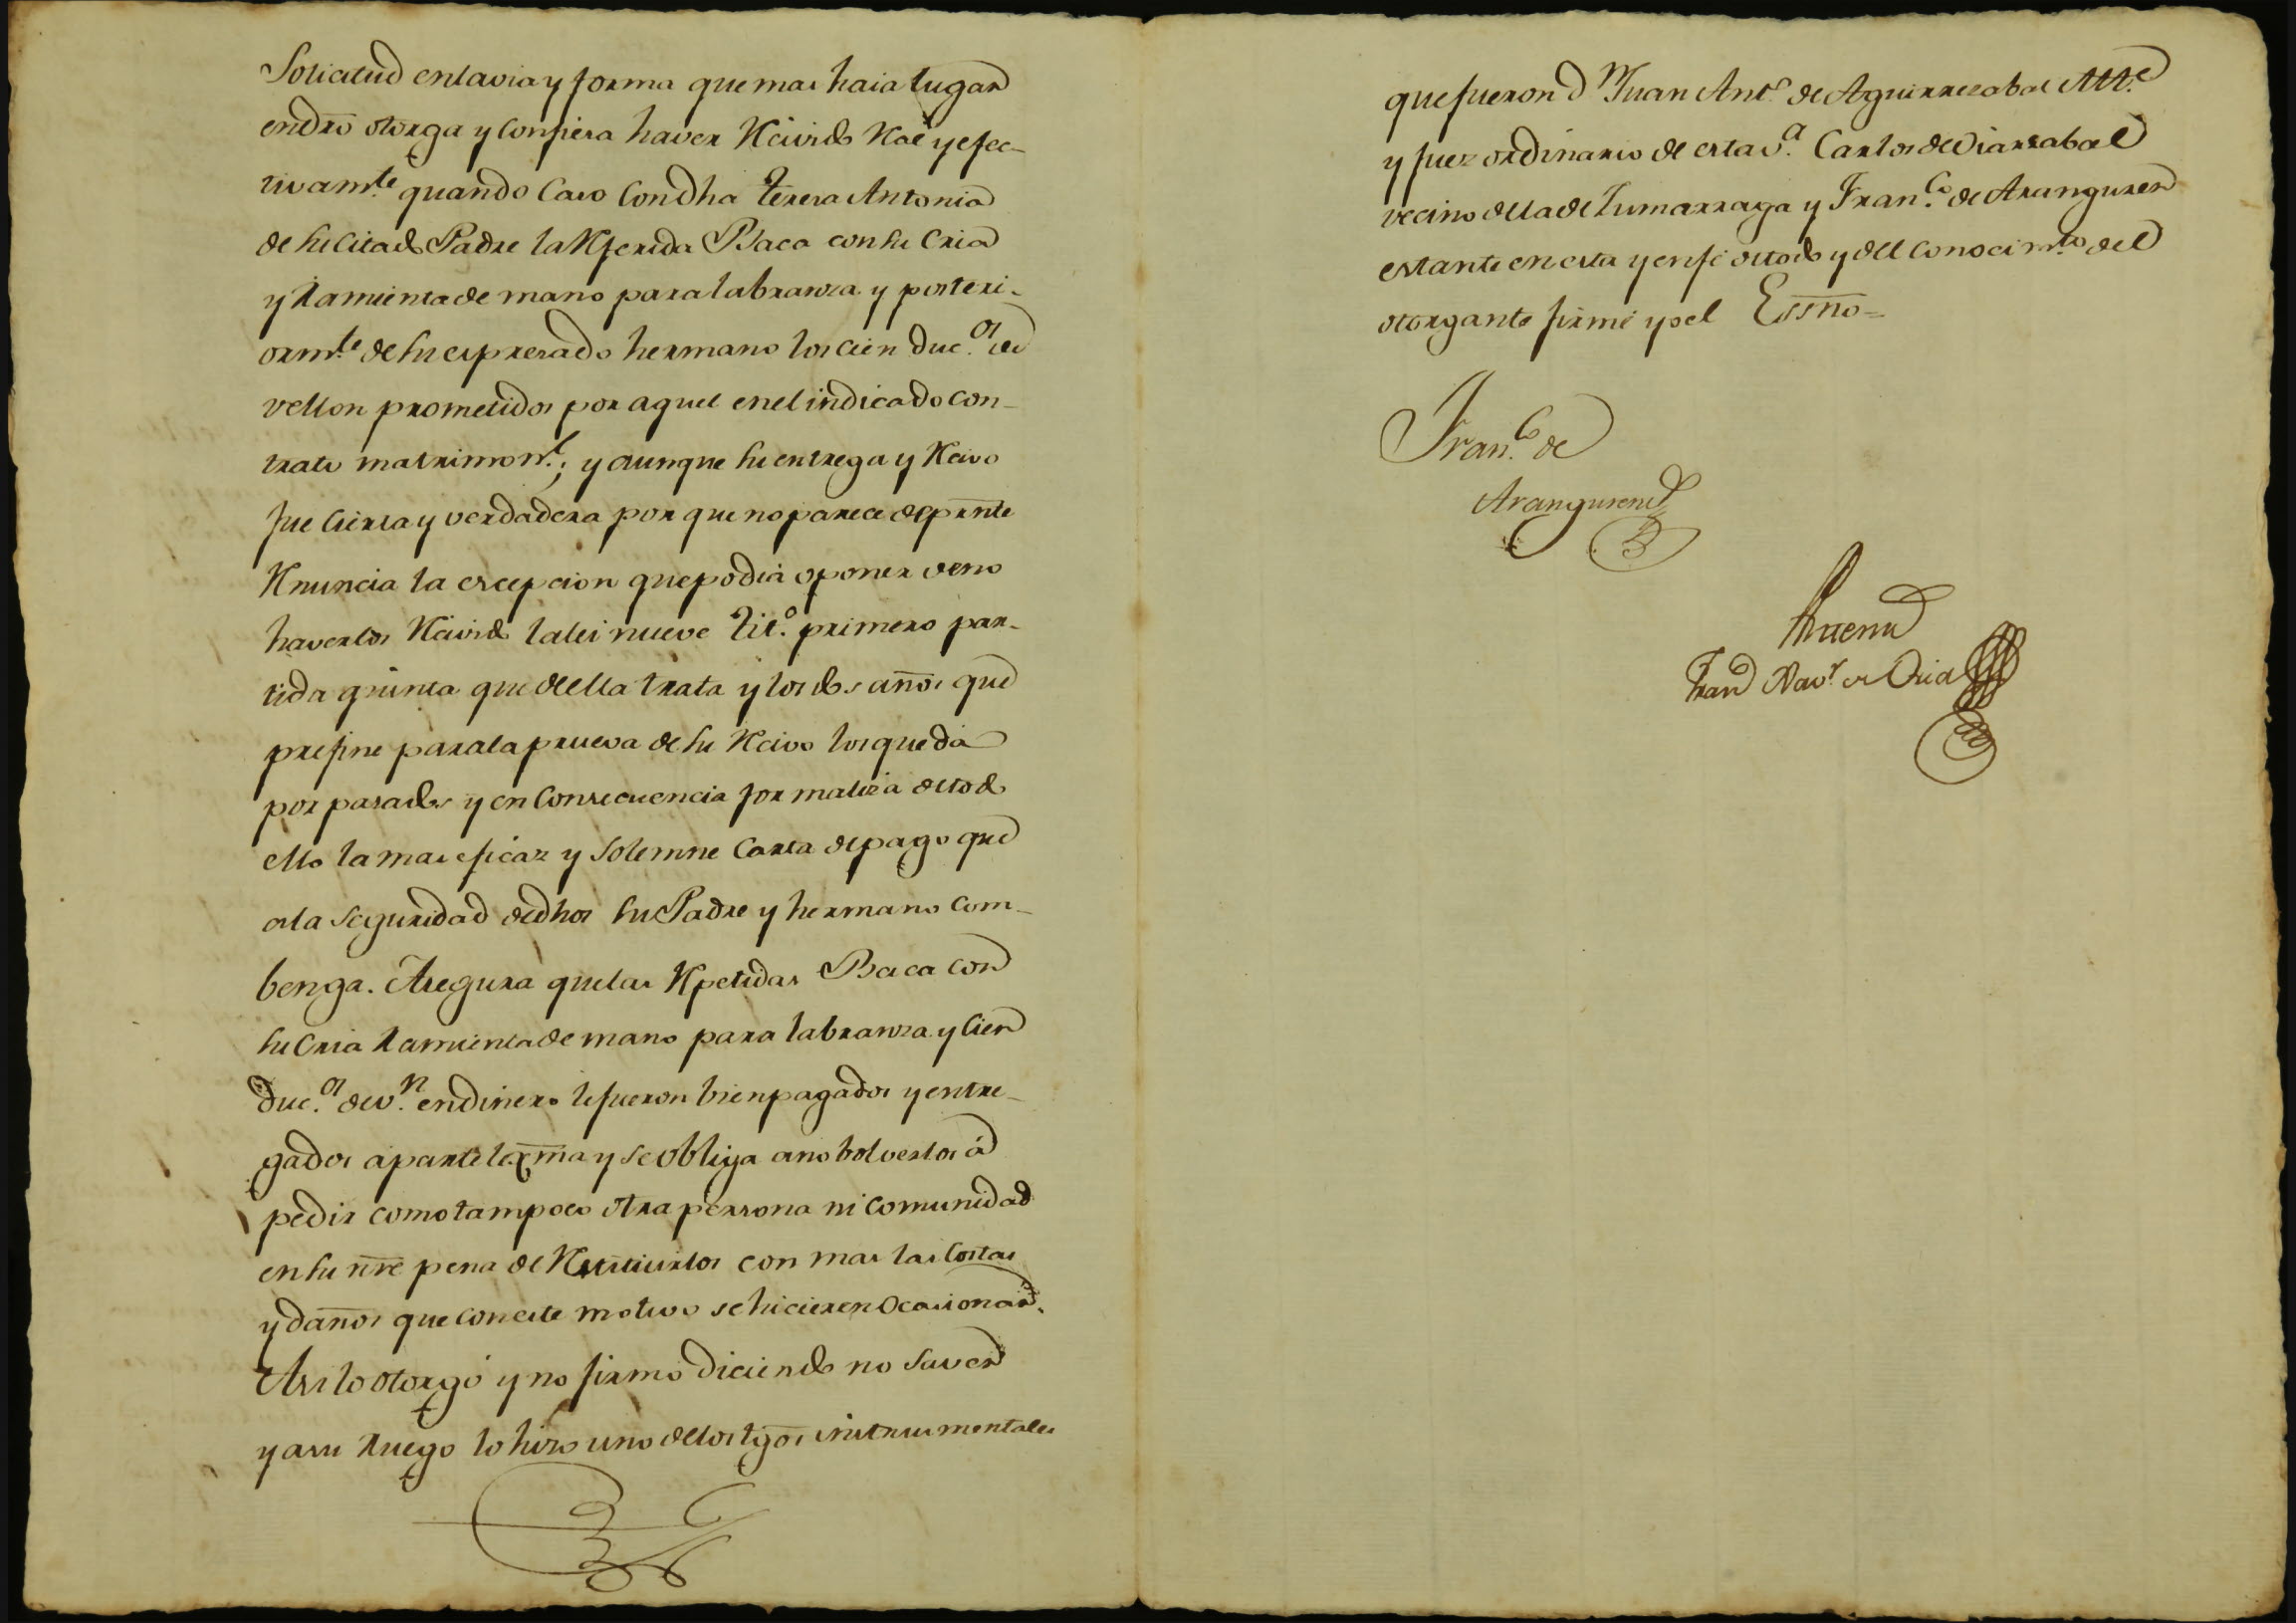 Solicitud en la via y forma que mas haia lugar
en dró otorga y confiesa haver Rcivido Rál y efec-
tivam.te quando caso con dha Teresa Antonia
de su citado Padre la Rferida Baca con su Cria
y rramienta de mano para labranza y posteri-
orm.te de su expresado hermano los cien duc.os de
vellon prometidos por aquel en el indicado con-
trato matrimon.l; y aunque su entrega y Rcivo
fue cierta y verdadera por que no parece de prnte
Rnuncia la excepcion que podia oponer de no
haverlos Rcivido la lei nueve tit.o primero par-
tida quinta que de ella trata y los dos años que
prefine para la prueva de su Rcivo los que da
por pasados y en Consecuencia formaliza de todo
ello la mas eficaz y solemne Carta de pago que
a la seguridad de dhos su Padre y hermano com-
benga. Asegura que las Rpetidas Baca con
su Cria rramienta de mano para labranza y cien
Duc.os de v.n en dinero le fueron bien pagados y entre-
gados a parte lexma y se obliga a no bolverlos á
pedir como tampoco otra persona ni comunidad
en su nre pena de Rstituirlos con mas las Costas
y daños que con este motivo se hicieren ocasionar.
Asi lo otorgó y no firmó diciendo no saver
y a su ruego lo hizo uno de los tgos instrumentales
que fueron D Juan Ant.o de Aguirrezabal Alc.e
y Juez ordinario de esta v.a Carlos de Oiarzabal
vecino de la de Zumarraga y Fran.co de Aranguren
estante en esta y en fé de todo y del conocim.to del
otorgante firmé yo el Essno=
Fran.co de
Aranguren
Antemi
Fran Xav.r de Oria